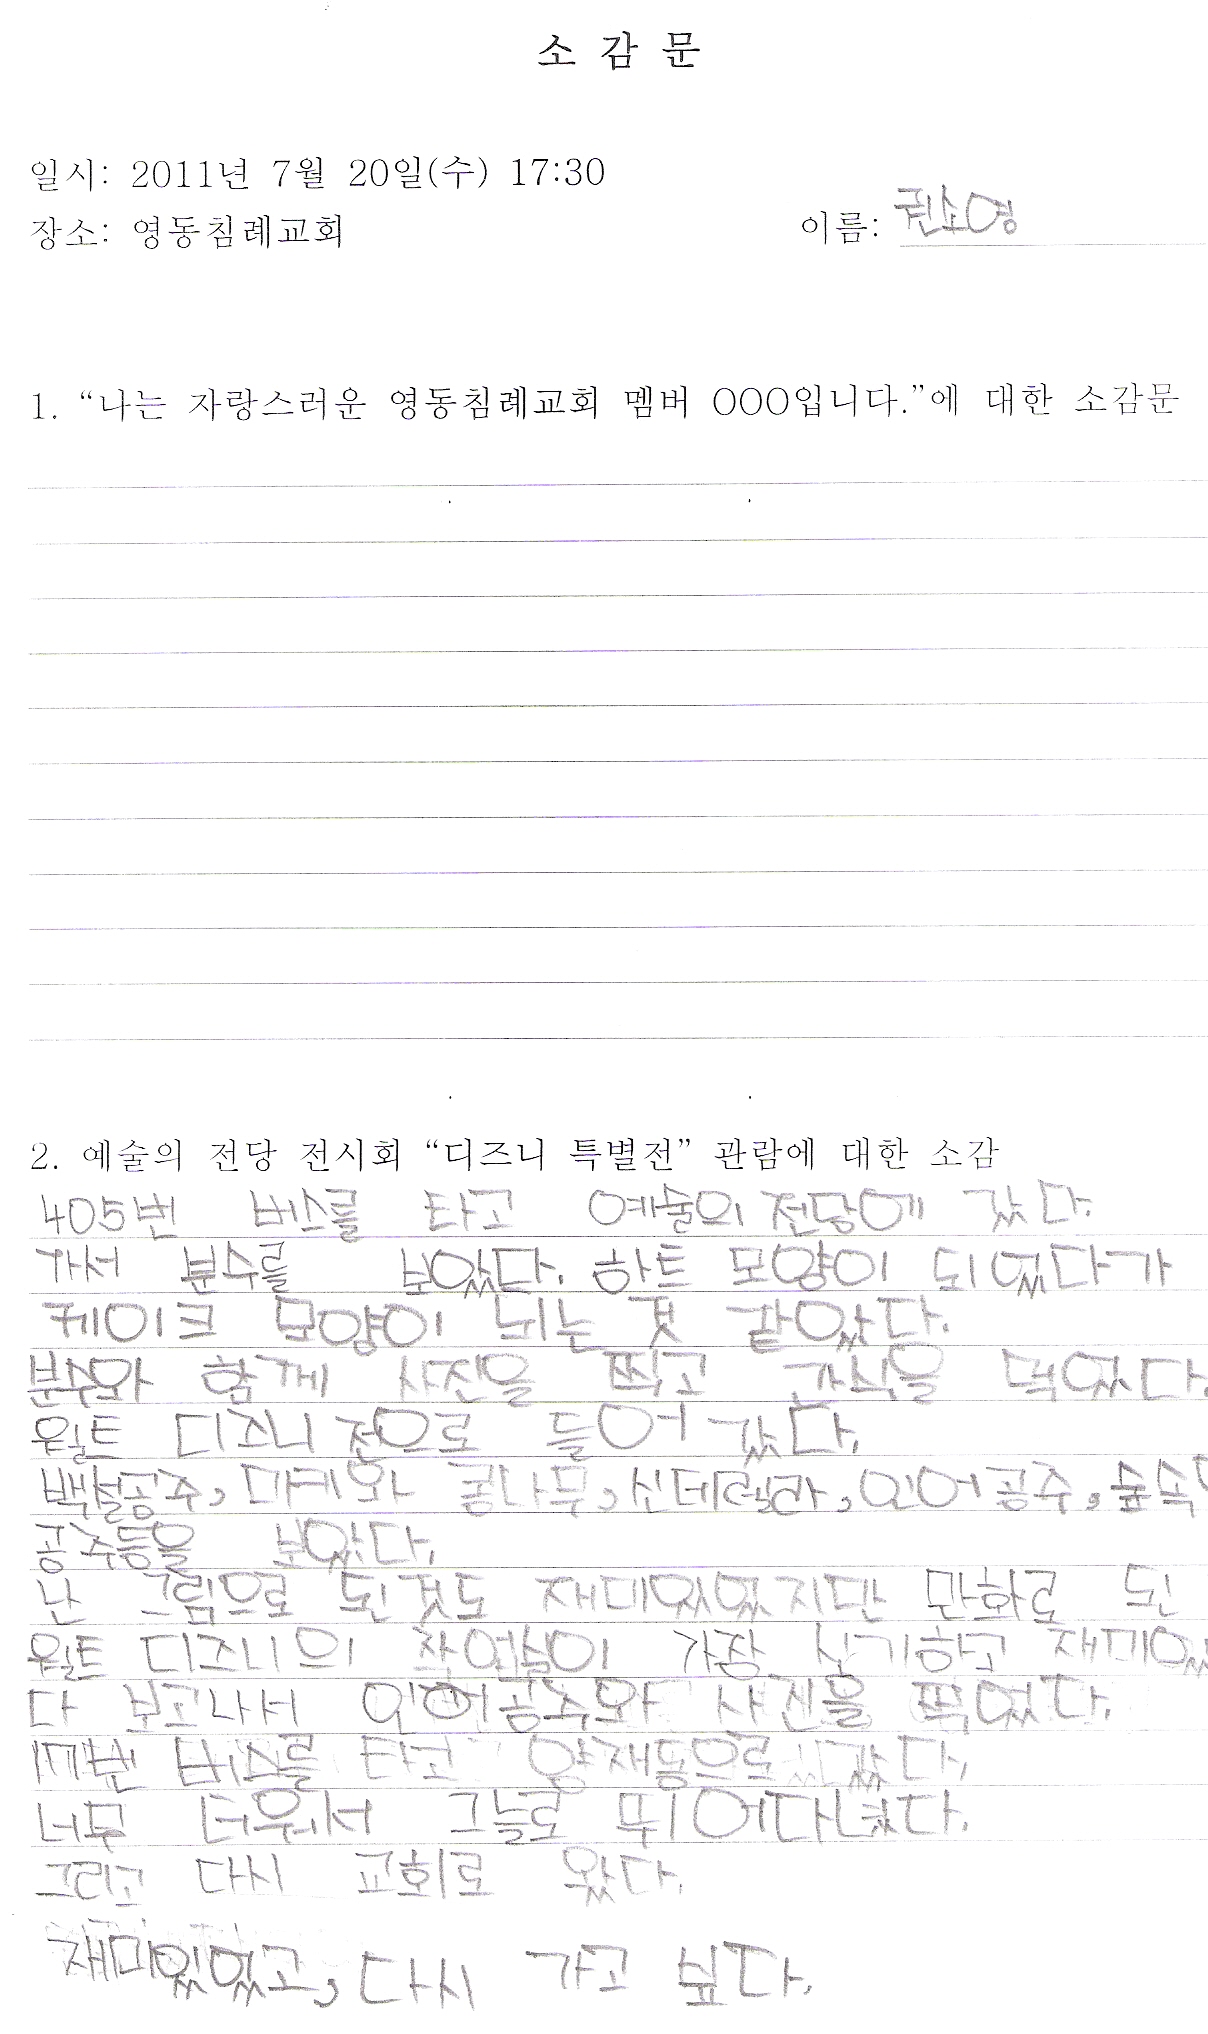 소 감 문
일시: 2011년 7월 20일(수) 17:30
장소: 영동침례교회
이름: 권소영
1. “나는 자랑스러운 영동침례교회 멤버 OOO입니다.”에 대한 소감문
2. 예술의 전당 전시회 “디즈니 특별전” 관람에 대한 소감
405번 버스를 타고 예술의 전당에 갔다.
가서 분수를 보았다. 하트 모양이 되었다가
케이크 모양이 되는 것 같았다.
분수와 함께 사진을 찍고 간식을 먹었다.
월트 디즈니 전으로 들어 갔다.
백설공주, 미키와 콩나무, 신데렐라, 인어 공주, 숲속
공주등을 보았다.
난 그림으로 된것도 재미있었지만 만화로 된
월트 디즈니의 가장 신기하고 재미있
다 보고나서 인어공주와 사진을 찍었다.
17번 버스를 타고 양재동으로 갔다.
너무 더워서 그늘로 뛰어다녔다.
그리고 다시 교회로 왔다.
재미있었고, 다시 가고 싶다.